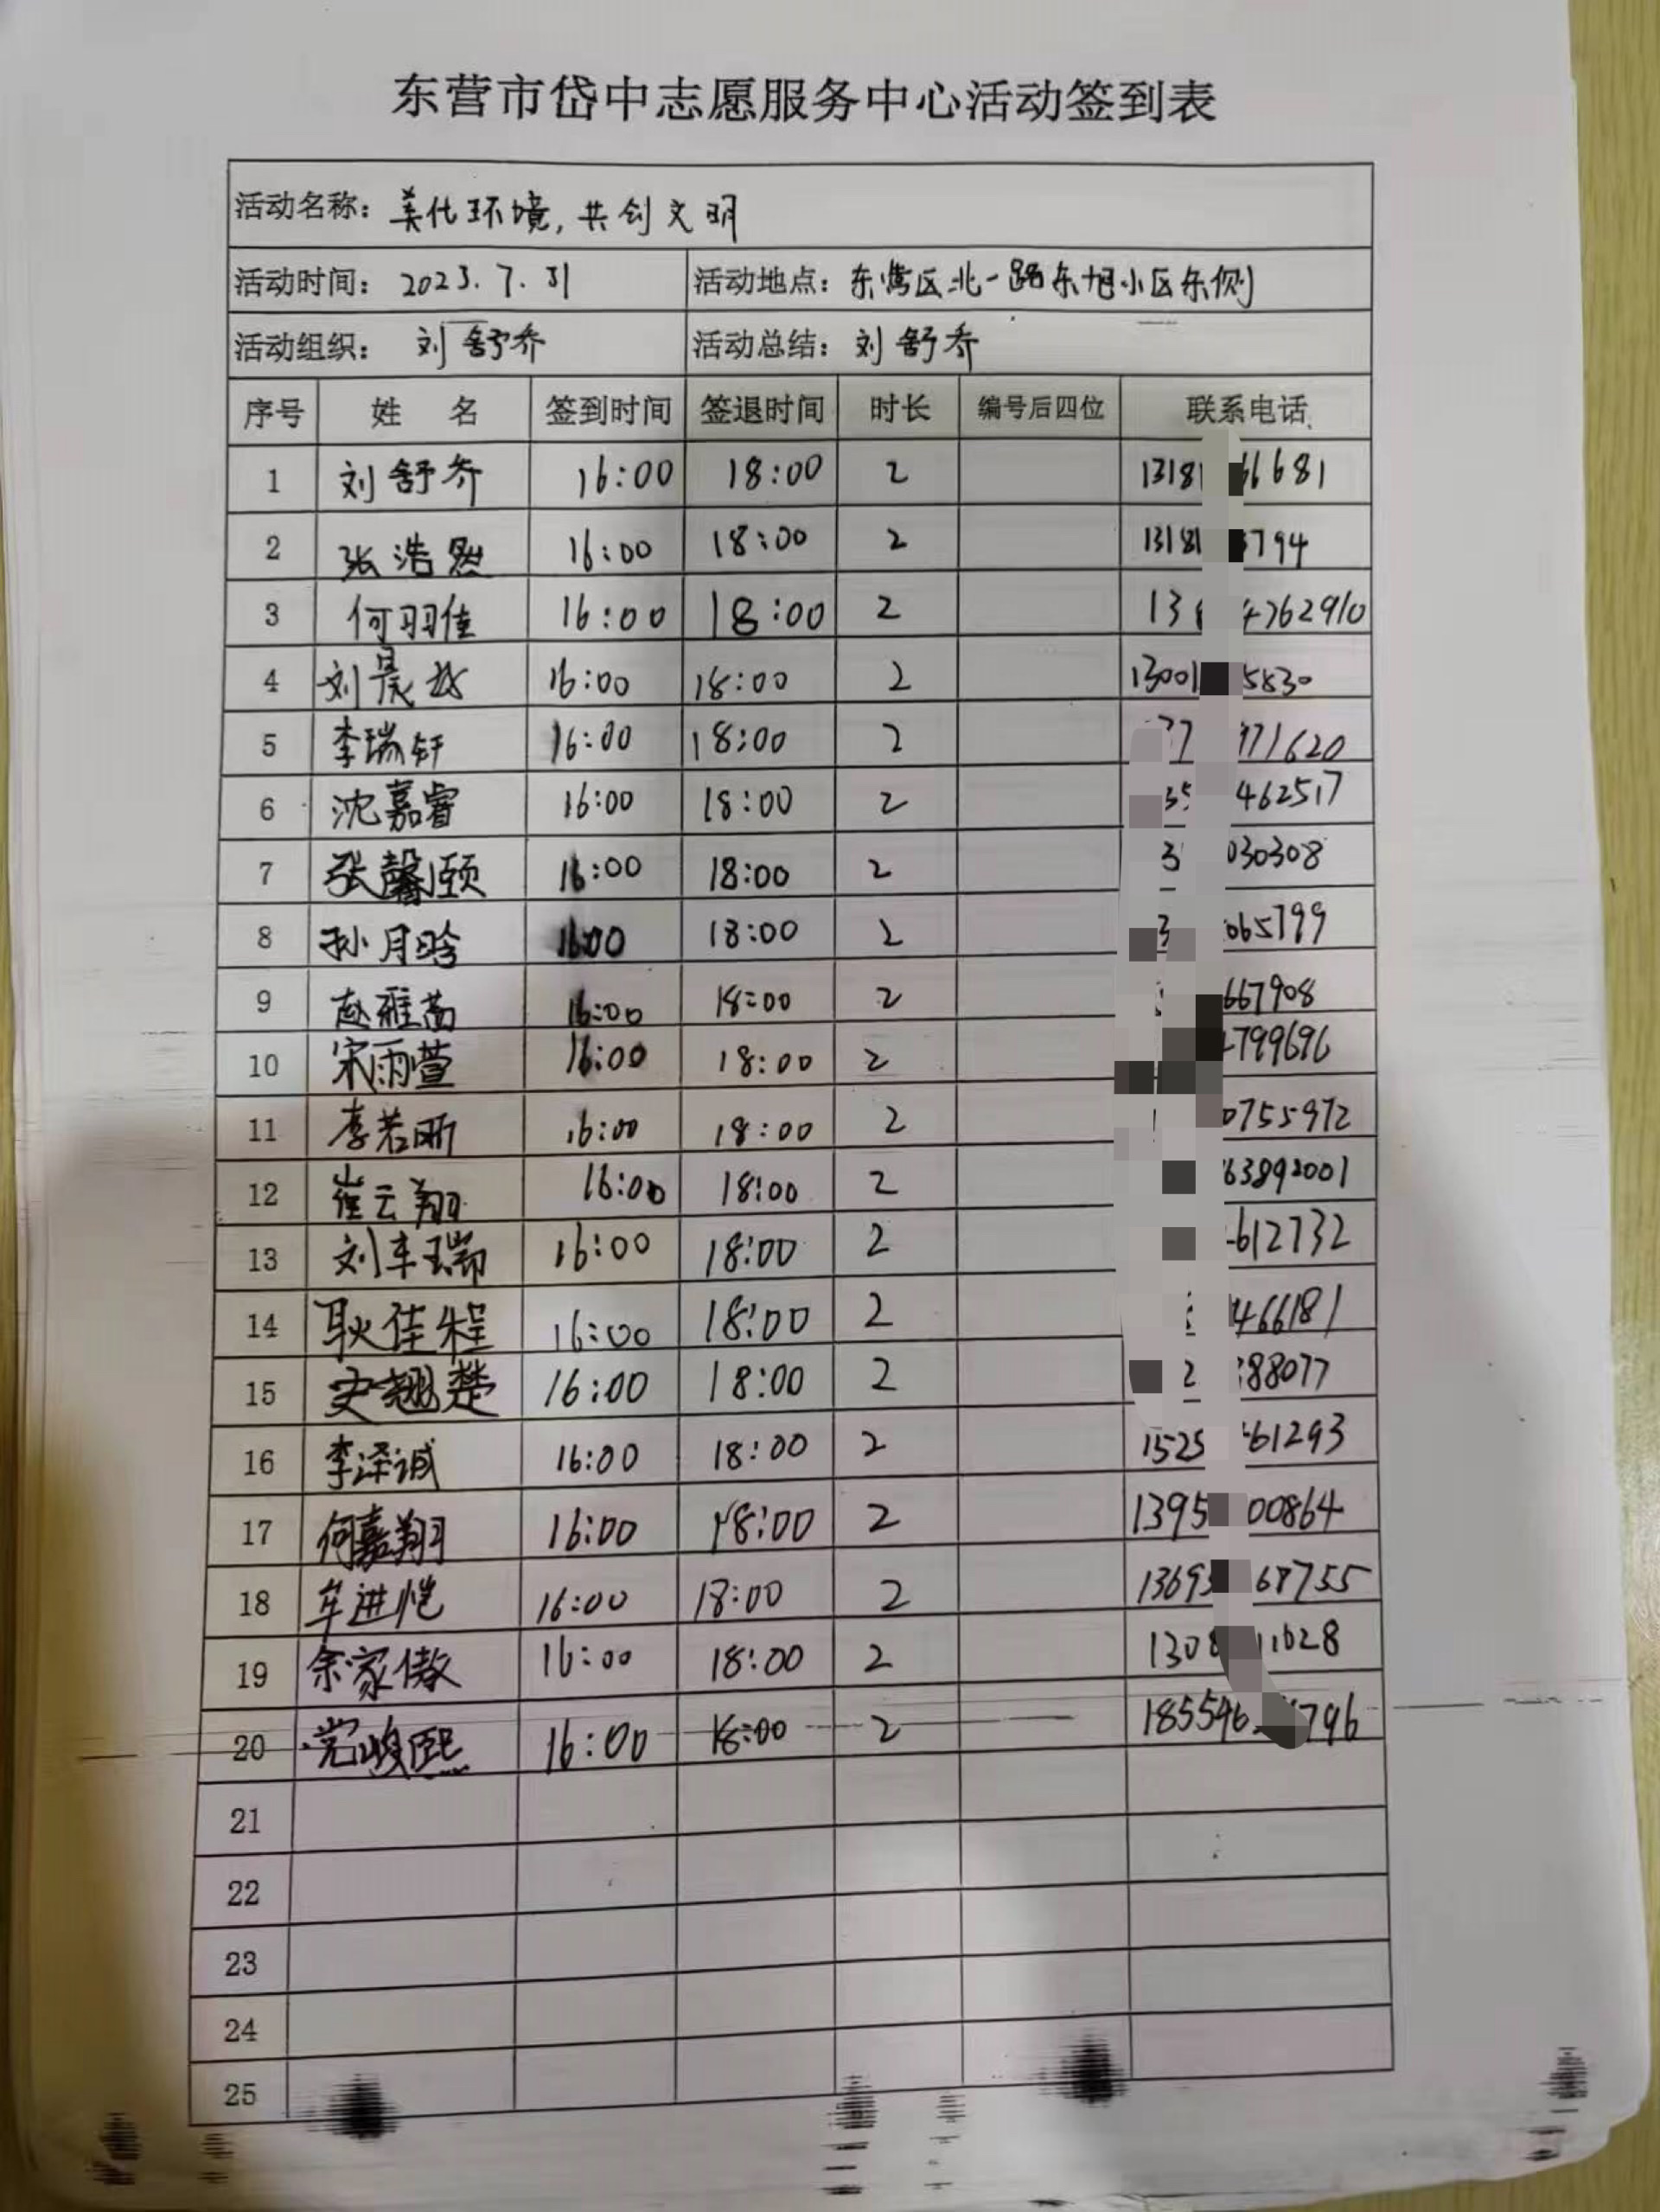 东营市岱中志愿服务中心活动签到表
活动名称：美化环境，共创文明
活动时间：2023.7.31 活动地点：东营区北一路东旭小区东侧
活动组织：刘舒乔 活动总结：刘舒乔
序号 姓 名 签到时间 签退时间 时长 编号后四位 联系电话
1 刘舒乔 16:00 18:00 2 1318 66681
2 张浩然 16:00 18:00 2 1318 794
3 何羽佳 16:00 18:00 2 13 762910
4 刘晨 16:00 18:00 2 13001 5830
5 李瑞轩 16:00 18:00 2 77 971620
6 沈嘉睿 16:00 18:00 2 35 462517
7 张馨颐 16:00 18:00 2 3 030308
8 孙月晗 16:00 18:00 2 3 065799
9 赵雅茜 16:00 18:00 2 667908
10 宋雨萱 16:00 18:00 2 799696
11 李若昕 16:00 18:00 2 0755972
12 崔云翔 16:00 18:00 2 63892001
13 刘丰瑞 16:00 18:00 2 612732
14 耿佳程 16:00 18:00 2 466181
15 史翘楚 16:00 18:00 2 2 88077
16 李泽诚 16:00 18:00 2 1525 61293
17 何嘉翔 16:00 18:00 2 1395 00864
18 牟进恺 16:00 18:00 2 13695 68755
19 余家傲 16:00 18:00 2 1308 11628
20 党峻熙 16:00 18:00 2 185546 796
21
22
23
24
25